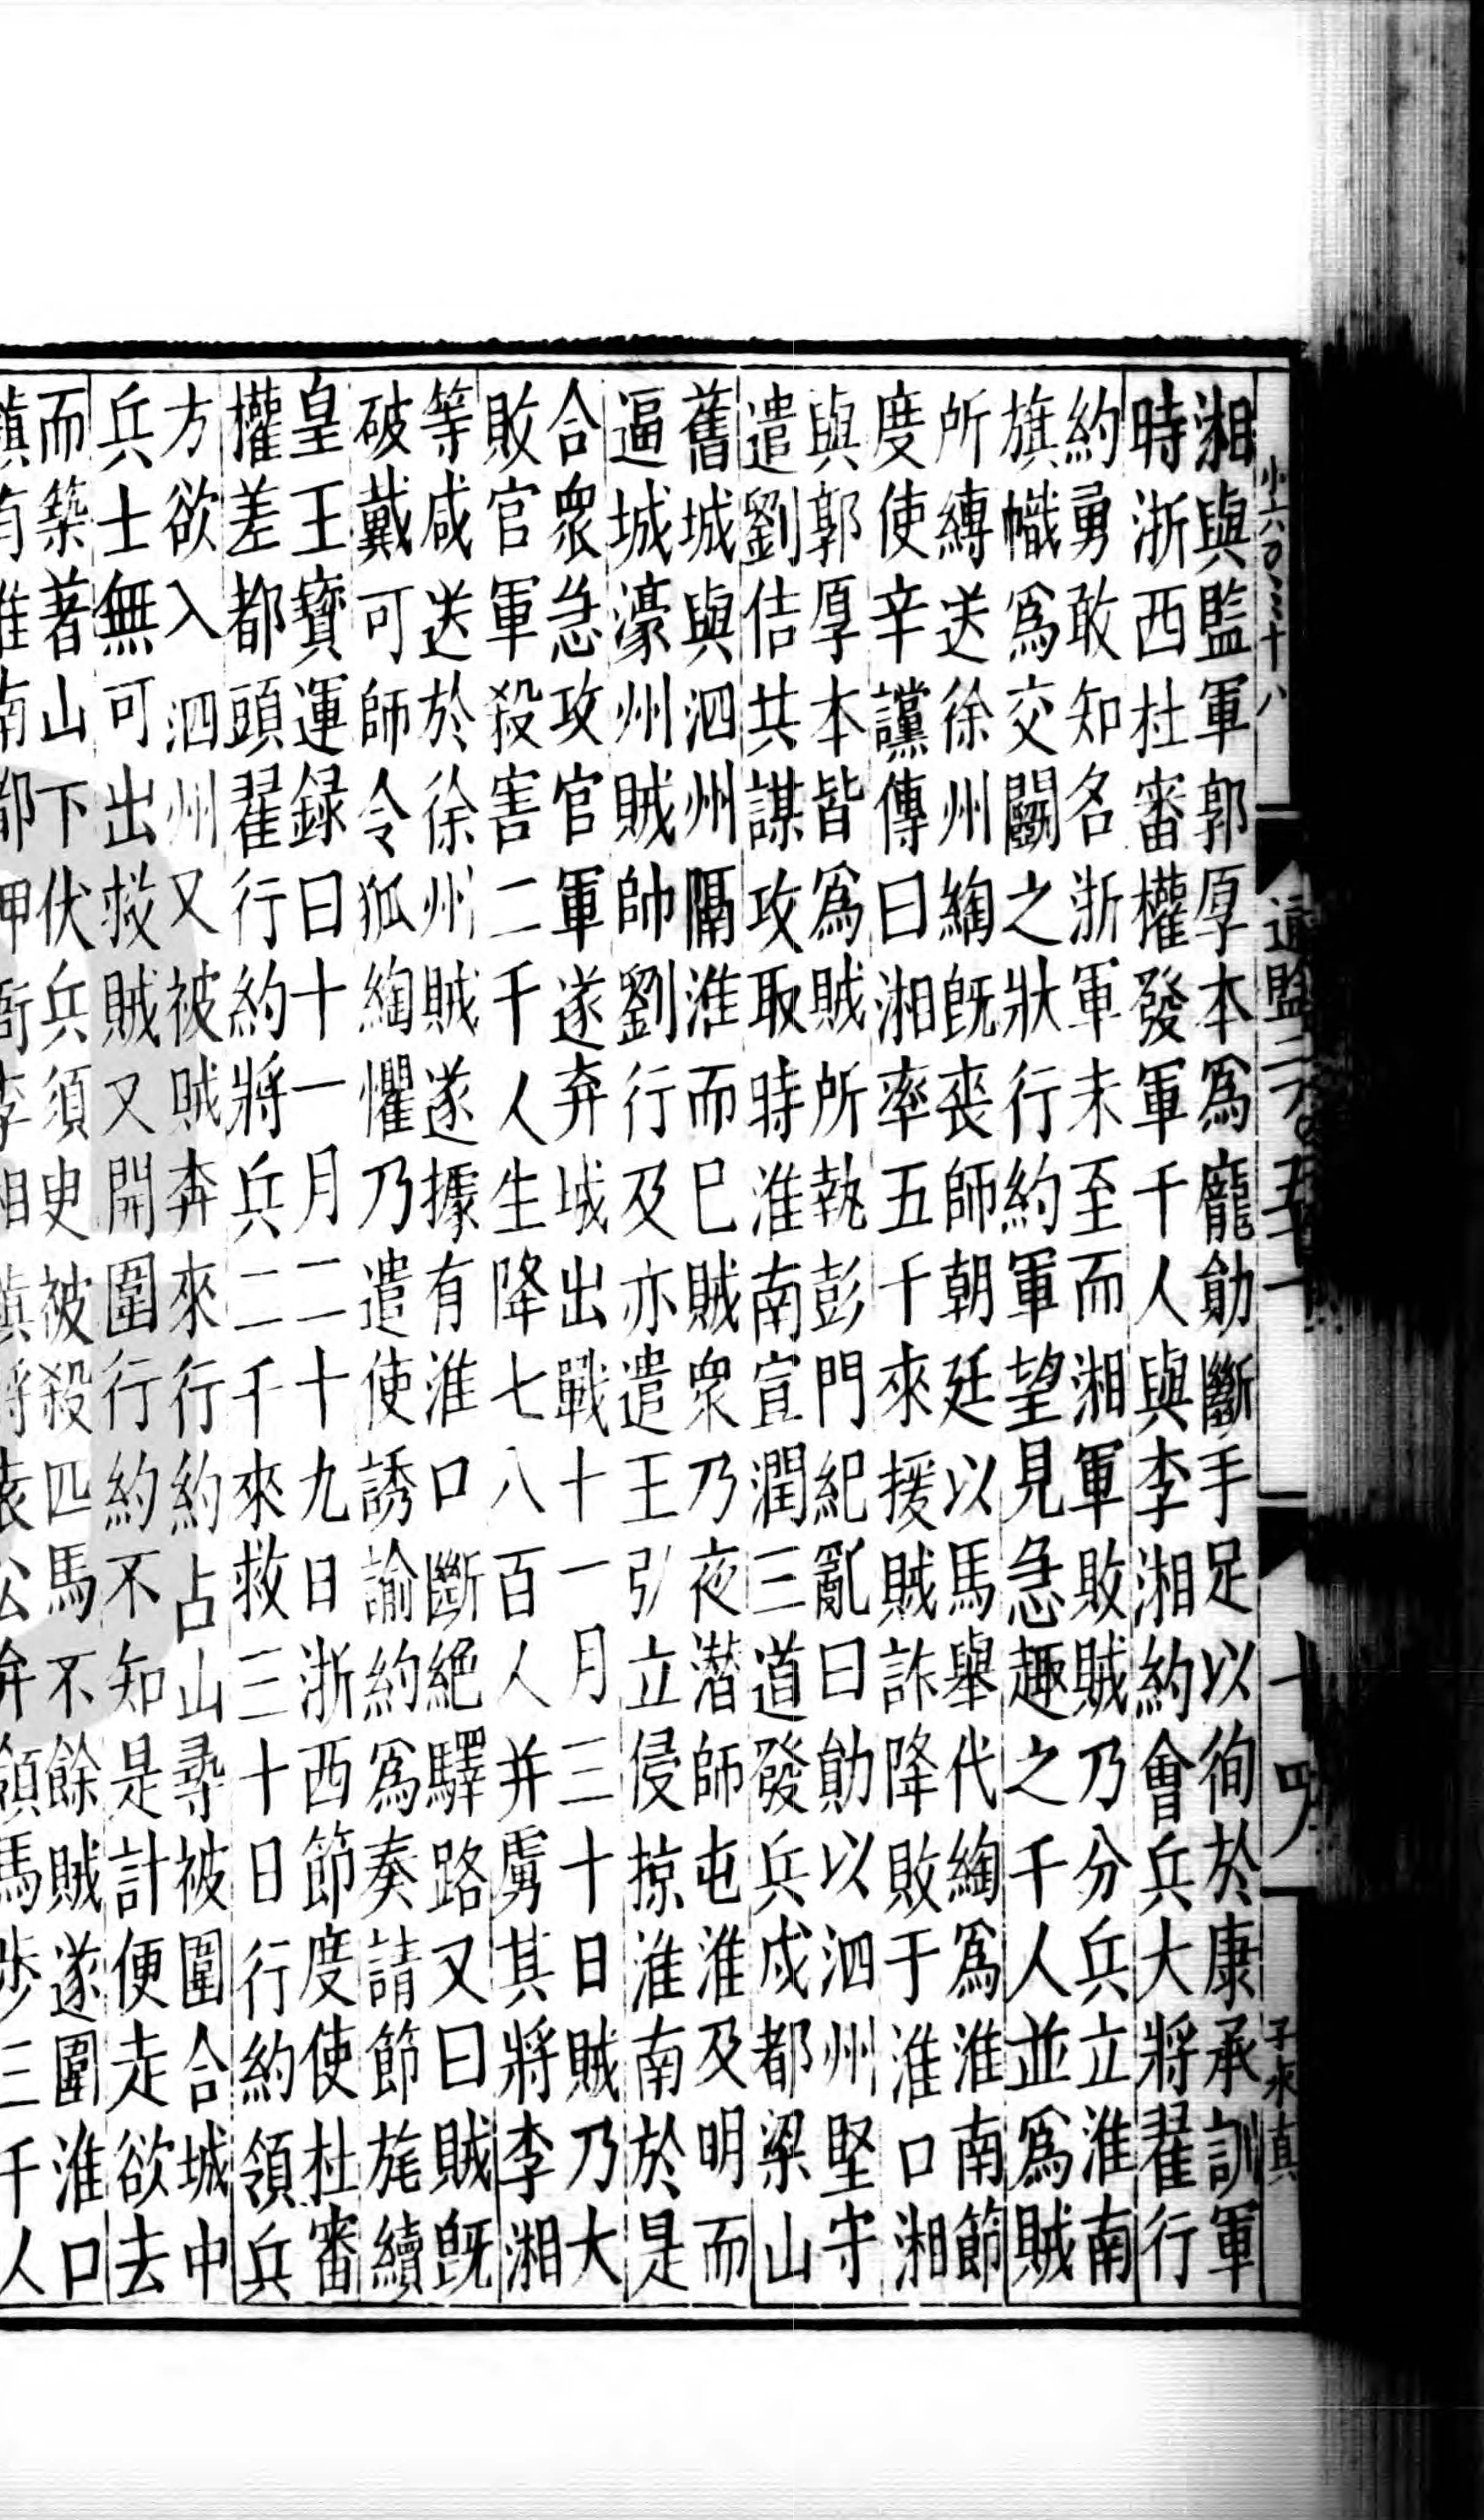 小六百三十八 通鑑二百五十一 十四 子永真
湘與監軍郭厚本爲龐勛斷手足以徇於康承訓軍
時浙西杜審權發軍千人與李湘約會兵大將翟行
約勇敢知名浙軍未至而湘軍敗賊乃分兵立淮南
旗幟爲交鬭之狀行約軍望見急趣之千人並爲賊
所縛送徐州綯旣喪師朝廷以馬舉代綯爲淮南節
度使辛讜傳曰湘率五千來援賊詐降敗于淮口湘
與郭厚本皆爲賊所執彭門紀亂曰勛以泗州堅守
遣劉佶共謀攻取時淮南宣潤三道發兵戍都梁山
舊城與泗州隔淮而已賊衆乃夜潜師屯淮及明而
逼城濠州賊帥劉行及亦遣王引立侵掠淮南於是
合衆急攻官軍遂弃城出戰十一月三十日賊乃大
敗官軍殺害二千人生降七八百人并虜其將李湘
等咸送於徐州賊遂據有淮口斷絕驛路又曰賊旣
破戴可師令狐綯懼乃遣使誘諭約爲奏請節旄續
皇王寶運録曰十一月二十九日浙西節度使杜審
權差都頭翟行約將兵二千來救三十日行約領兵
方欲入泗州又被賊奔來行約占山尋被圍合城中
兵士無可出救賊又開圍行約不知是計便走欲去
而築著山下伏兵須史被殺匹馬不餘賊遂圍淮口
鎮有淮南都押衙李湘鎮將袁公弁領馬步三千人